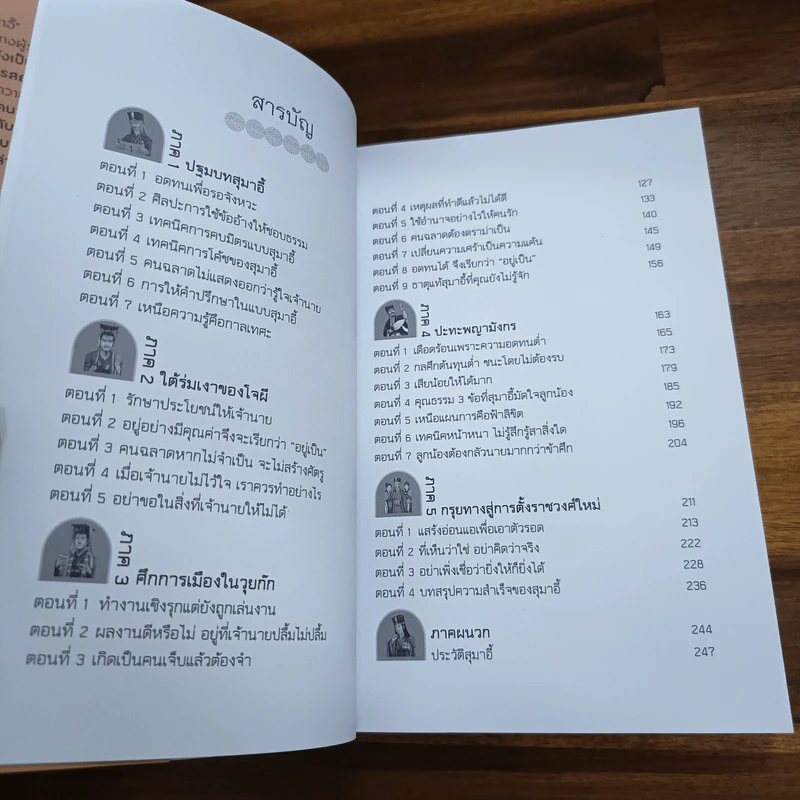 สารบัญ
ภาค 1 ปฐมบทสุมาอี้
ตอนที่ 1 อดทนเพื่อรอจังหวะ
ตอนที่ 2 ศิลปะการใช้ข้ออ้างให้ชอบธรรม
ตอนที่ 3 เทคนิคการคบมิตรแบบสุมาอี้
ตอนที่ 4 เทคนิคการโค้ชของสุมาอี้
ตอนที่ 5 คนฉลาดไม่แสดงออกว่ารู้ใจเจ้านาย
ตอนที่ 6 การให้คำปรึกษาในแบบสุมาอี้
ตอนที่ 7 เหนือความรู้คือกาลเทศะ
ภาค 2 ใต้ร่มเงาของโจผี
ตอนที่ 1 รักษาประโยชน์ให้เจ้านาย
ตอนที่ 2 อยู่อย่างมีคุณค่าจึงจะเรียกว่า "อยู่เป็น"
ตอนที่ 3 คนฉลาดหากไม่จำเป็น จะไม่สร้างศัตรู
ตอนที่ 4 เมื่อเจ้านายไม่ไว้ใจ เราควรทำอย่างไร
ตอนที่ 5 อย่าขอในสิ่งที่เจ้านายให้ไม่ได้
ภาค 3 ศึกการเมืองในวุยก๊ก
ตอนที่ 1 ทำงานเชิงรุกแต่ยังถูกเล่นงาน
ตอนที่ 2 ผลงานดีหรือไม่ อยู่ที่เจ้านายปลื้มไม่ปลื้ม
ตอนที่ 3 เกิดเป็นคนเจ็บแล้วต้องจำ
ตอนที่ 4 เหตุผลที่ทำดีแล้วไม่ได้ดี 127
ตอนที่ 5 ใช้อำนาจอย่างไรให้คนรัก 133
ตอนที่ 6 คนฉลาดต้องดราม่าเป็น 140
ตอนที่ 7 เปลี่ยนความเศร้าเป็นความแค้น 145
ตอนที่ 8 อดทนได้ จึงเรียกว่า "อยู่เป็น" 149
ตอนที่ 9 ธาตุแท้สุมาอี้ที่คุณยังไม่รู้จัก 156
ภาค 4 ปะทะพญามังกร 163
ตอนที่ 1 เดือดร้อนเพราะความอดทนต่ำ 165
ตอนที่ 2 กลศึกต้นทุนต่ำ ชนะโดยไม่ต้องรบ 173
ตอนที่ 3 เสียน้อยให้ได้มาก 179
ตอนที่ 4 คุณธรรม 3 ข้อที่สุมาอี้มัดใจลูกน้อง 185
ตอนที่ 5 เหนือแผนการคือฟ้าลิขิต 192
ตอนที่ 6 เทคนิคหน้าหนา ไม่รู้สึกรู้สาสิ่งใด 196
ตอนที่ 7 ลูกน้องต้องกลัวนายมากกว่าข้าศึก 204
ภาค 5 กรุยทางสู่การตั้งราชวงศ์ใหม่ 211
ตอนที่ 1 แสร้งอ่อนแอเพื่อเอาตัวรอด 213
ตอนที่ 2 ที่เห็นว่าใช่ อย่าคิดว่าจริง 222
ตอนที่ 3 อย่าเพิ่งเชื่อว่ายิ่งให้ก็ยิ่งได้ 228
ตอนที่ 4 บทสรุปความสำเร็จของสุมาอี้ 236
ภาคผนวก 244
ประวัติสุมาอี้ 247